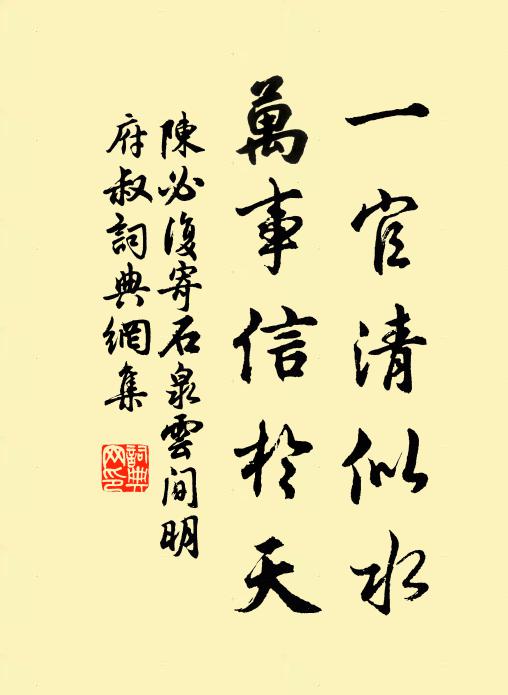 一官清似水
萬事信於天
陳必復寄石泉雲間明
府叔詞典網集
詞典
网印